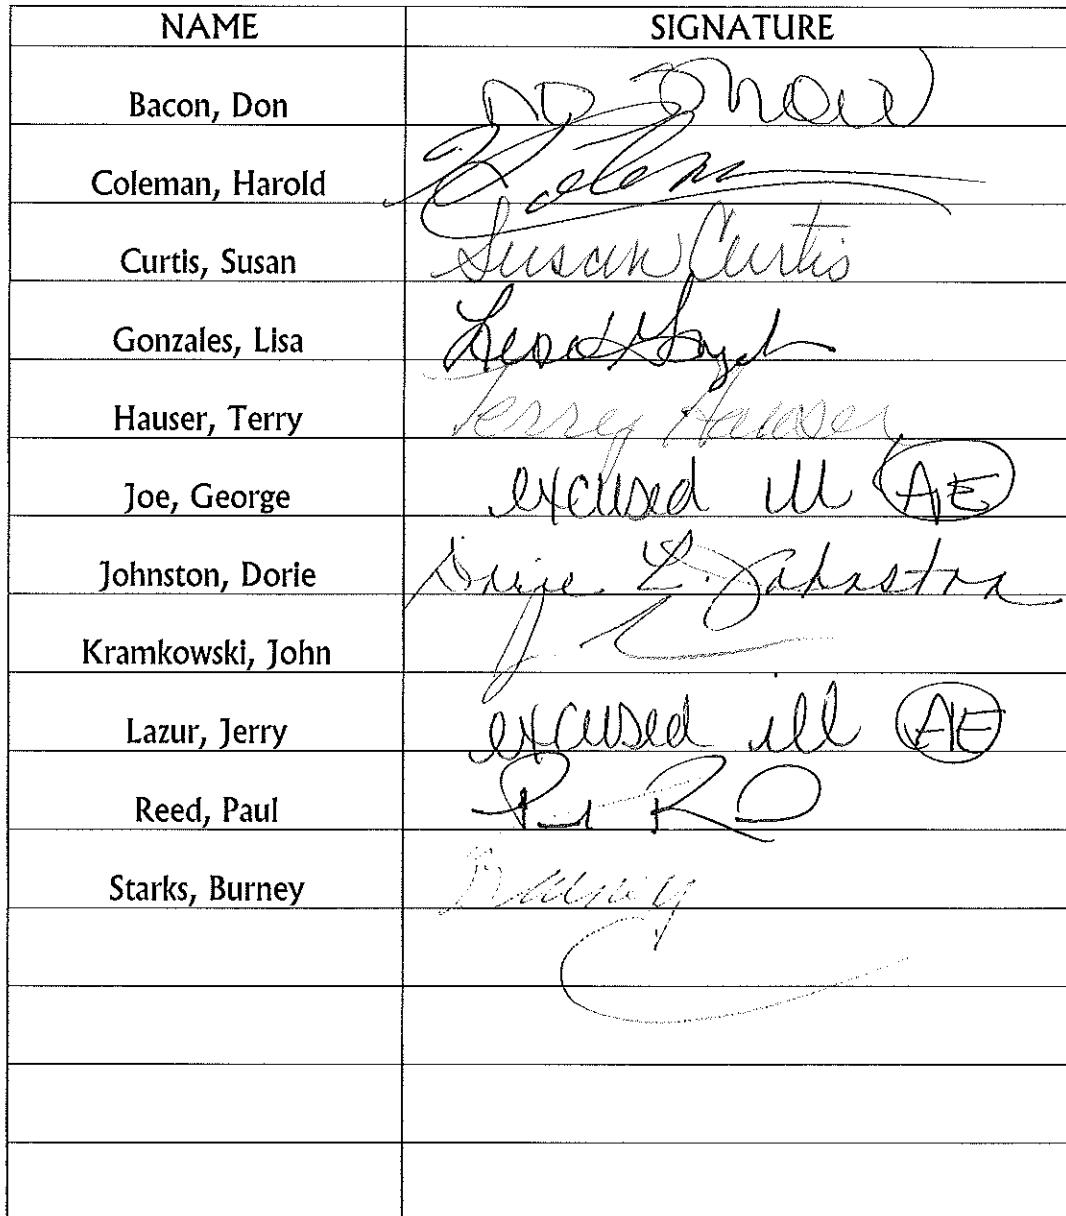 NAME SIGNATURE
Bacon, Don no show
Coleman, Harold H Coleman
Curtis, Susan Susan Curtis
Gonzales, Lisa Lisa
Hauser, Terry Terry Hauser
Joe, George excused ill AE
Johnston, Dorie Dorie L. Johnston
Kramkowski, John
Lazur, Jerry excused ill AE
Reed, Paul
Starks, Burney Burney